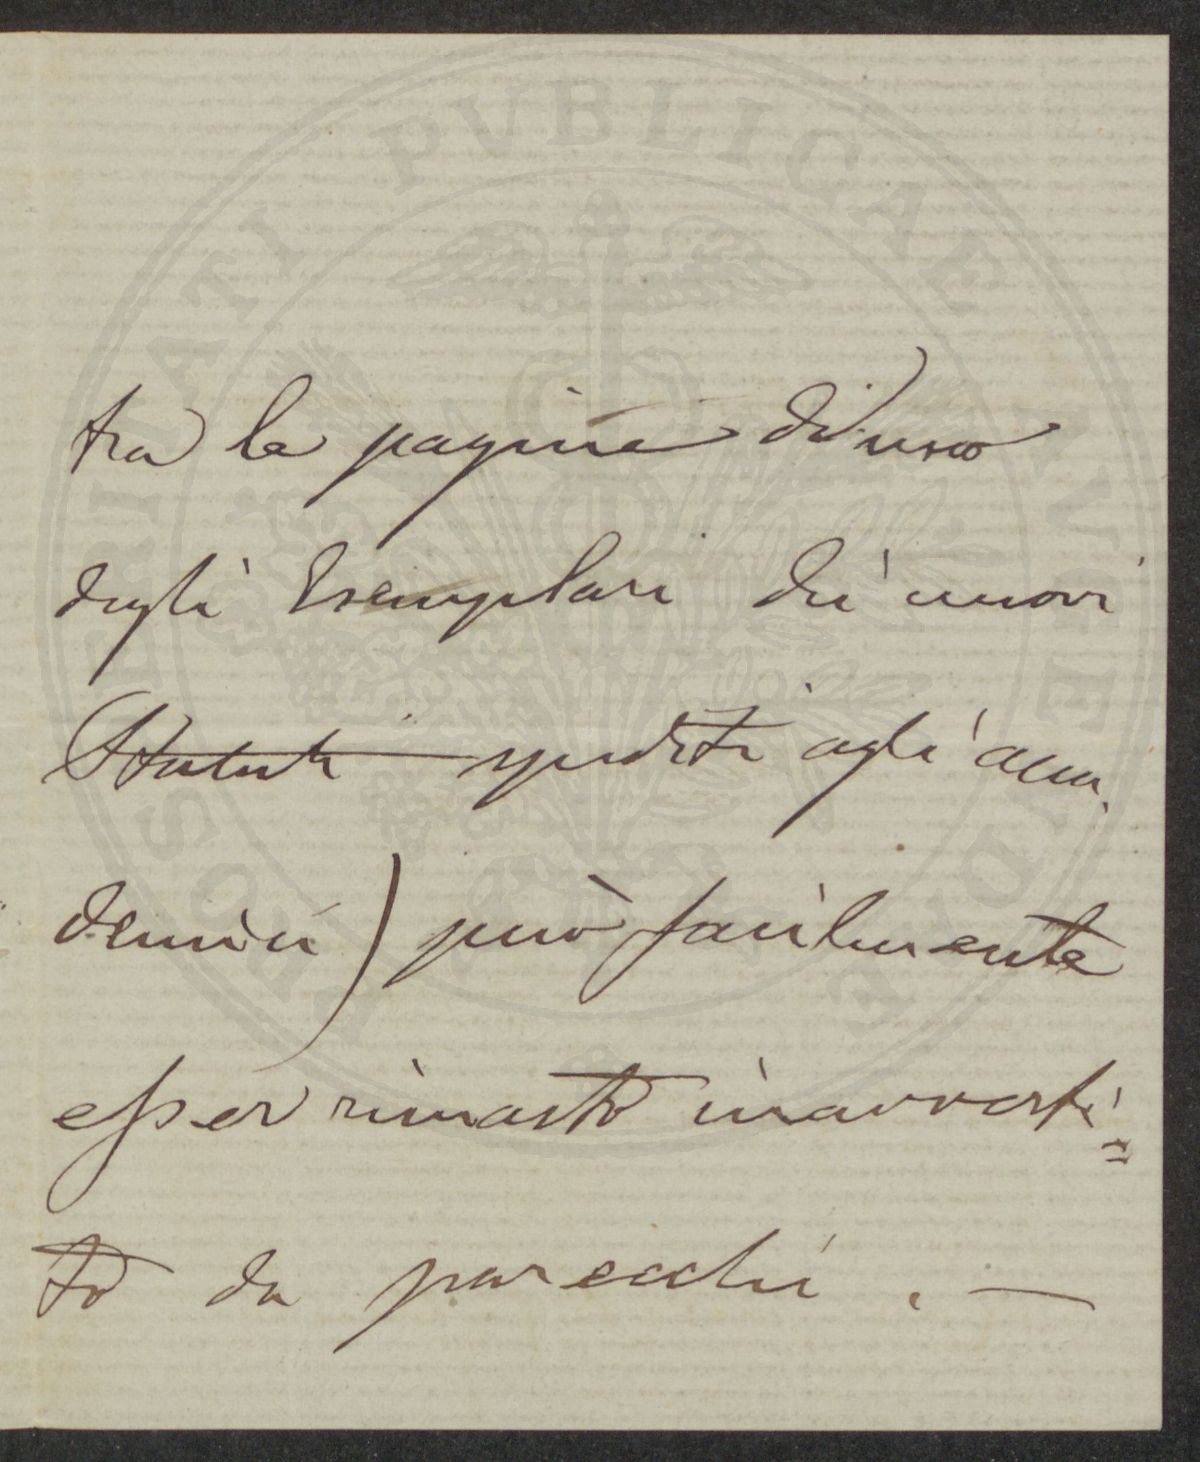 tra le pagine di uno
degli Esemplari dei nuovi
Statuti spediti agli acca-
demici) può facilmente
esser rimasto inavverti=
to da parecchi. —